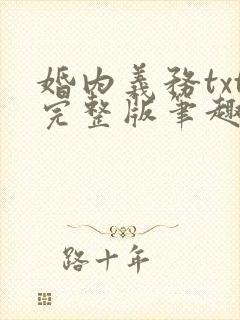 婚内義務txt
完整版筆趣
路十年